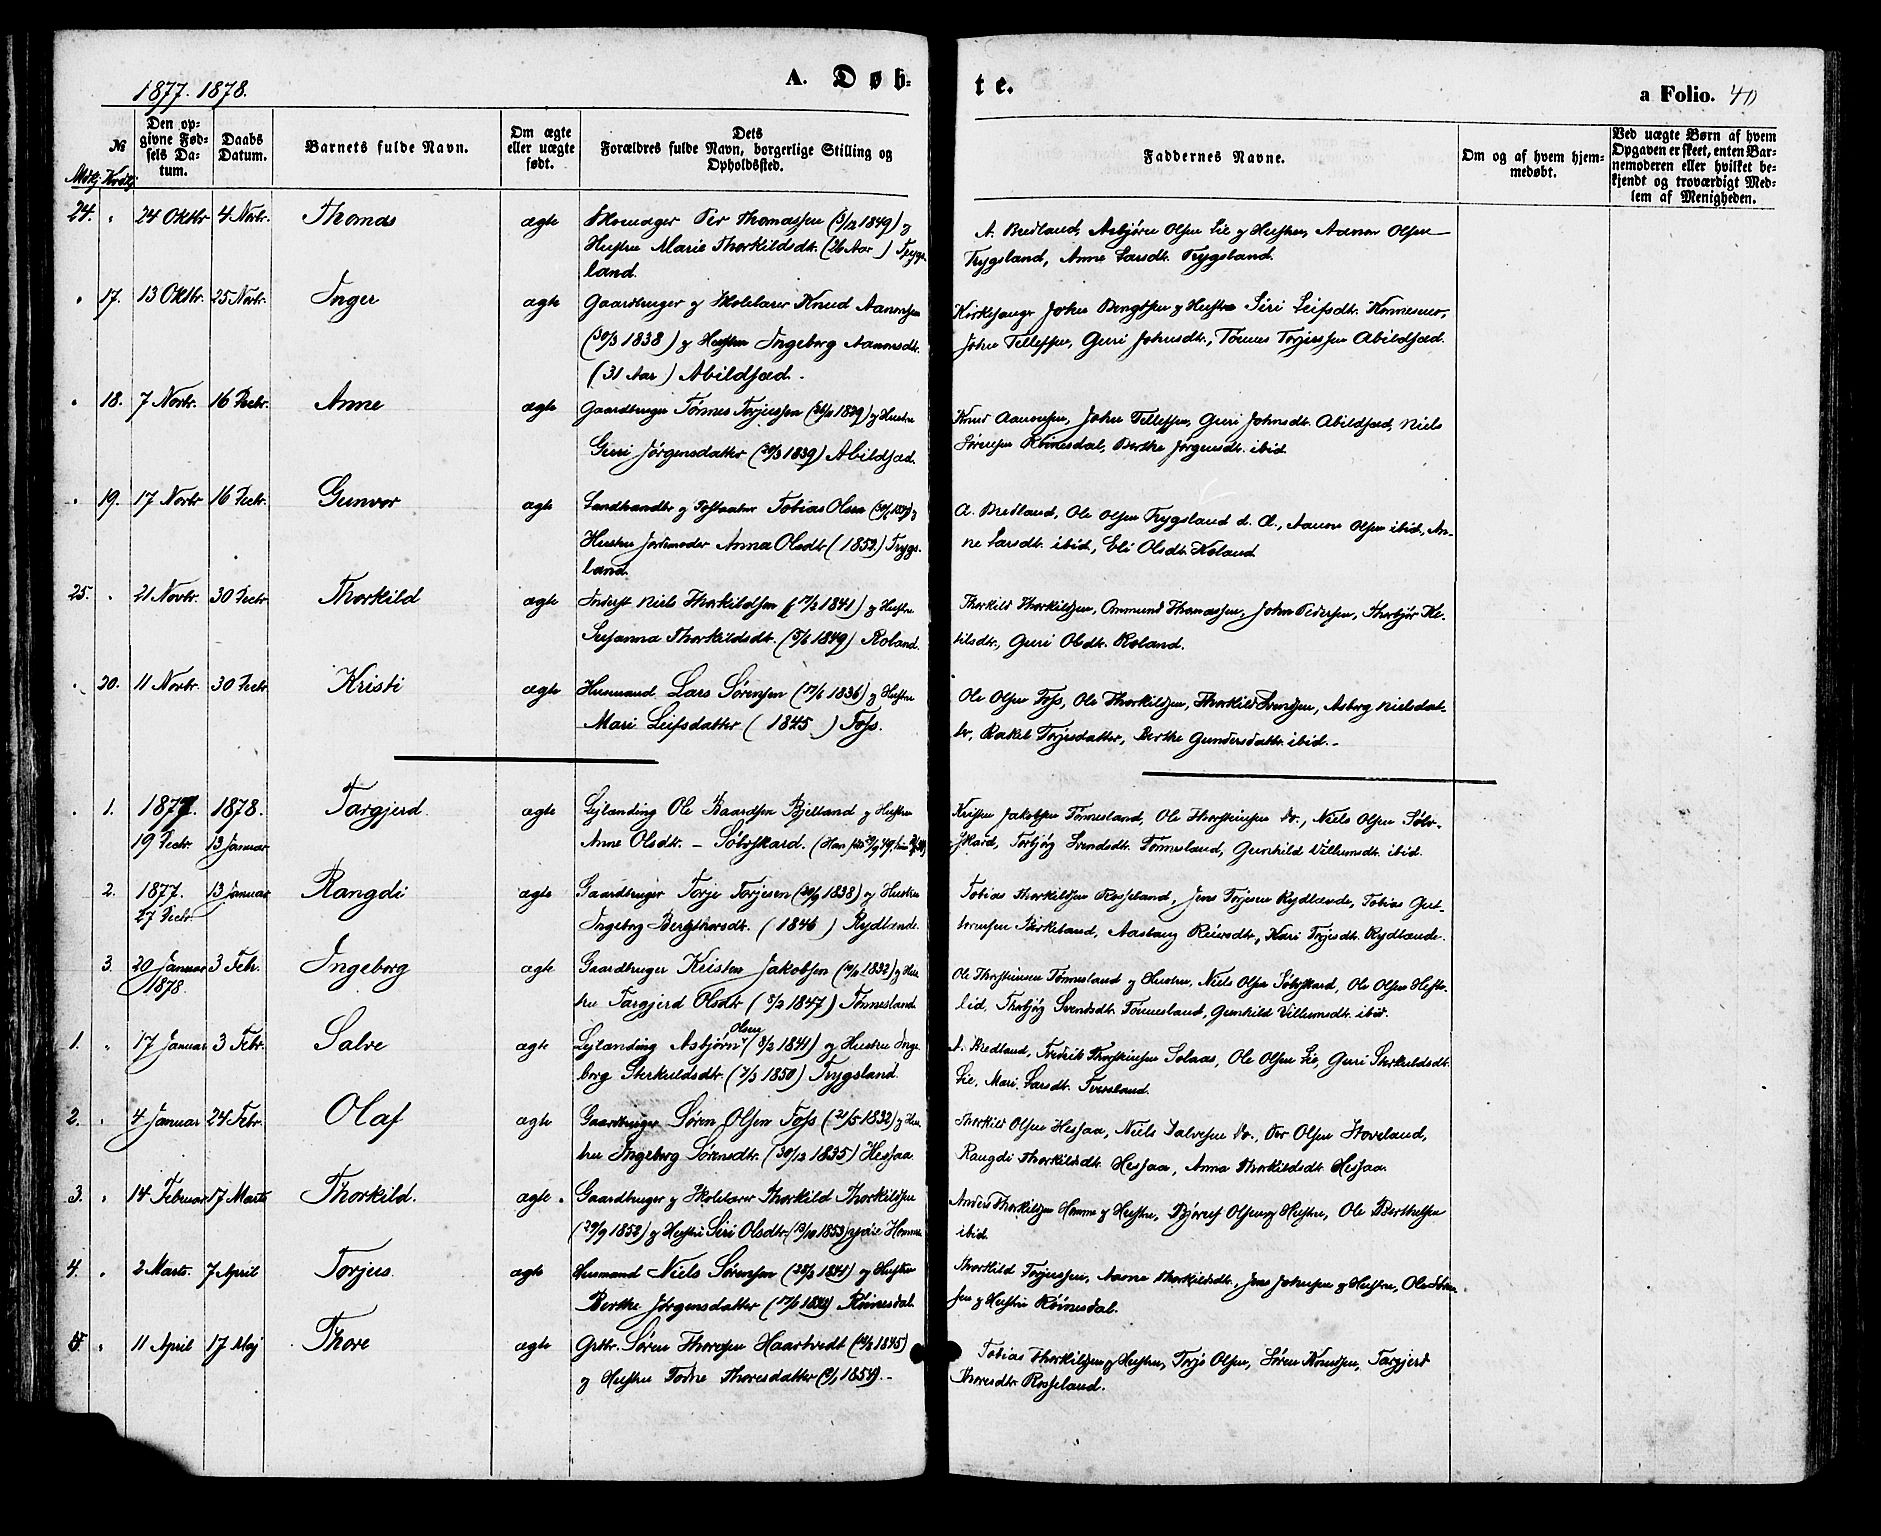 1877. 1878.
A. Døb-
te.
a Folio. 40
№
Mdkj. Kvdkj.
Den op-
givne Fød-
sels Da-
tum.
Daabs
Datum.
Barnets fulde Navn.
Om ægte
eller uægte
født.
Dets
Forældres fulde Navn, borgerlige Stilling og
Opholdssted.
Faddernes Navne.
Om og af hvem hjem-
medøbt.
Ved uægte Børn af hvem
Opgaven er skeet, enten Bar-
nemoderen eller hvilket be-
kjendt og troværdigt Med-
lem af Menigheden.
24. " 24 Oktbr 4 Novbr. Thomas ægte Skomager Per Thomassen (3/12 1849) og
Hustru Marie Thorkildsdtr. (26 Aar) Trygs-
land.
A. Bredland, Asbjørn Olsen Lie og Hustru, Aanon Olsen
Trygsland, Anne Larsdt. Trygsland.
" 17. 13 Oktbr. 25 Novbr. Inger ægte Gaardbruger og Skolelærer Knud Aanonsen
(30/3 1838) og Hustru Ingeborg Aanonsdt.
(31 Aar) Abildsæd.
Kirkesanger John Bengtsen og Hustru Siri Leifsdt. Konnesmo,
John Tellefsen, Guri Johnsdt., Tønnes Torjussen Abildsæd.
" 18. 7 Novbr. 16 Decbr. Anne ægte Gaardbruger Tønnes Torjussen og Hustru
Guri Jørgensdatter (20/3 1839) Abildsæd.
Knud Aanonsen, John Tellefsen, Guri Johnsdt. Abildsæd, Niels
Sørensen Røinesdal, Berthe Jørgensdt. ibid.
" 19. 17 Novbr 16 Decbr. Gunvor ægte Landhandler og Tobias Olsen og
Hustru Jordemoder Anna Olsdtr. (1852) Trygs-
land.
A. Bredland, Ole Olsen Trygsland d. Æ., Aanon Olsen ibid., An-
ne Larsdt. ibid., Eli Olsdt. Roland
25. " 21 Novbr. 30 Decbr Thorkild ægte Inderst Niels Thorkildsen (17/2 1841) og Hustru
Susanna Thorkildsdt. (5/6 1849) Roland.
Thorkild Thorkildsen, Ommund Thomassen, John Pedersen, Thorbjør Ke-
tilsdt., Guri Olsdt. Roland.
" 20. 11 Novbr. 30 Decbr Kristi ægte Husmand Lars Sørensen (17/6 1836) og Hustru
Mari Leifsdatter (1845) Foss.
Ole Olsen Foss, Ole Thorkildsen, Thorkild Svendsen, Asborg Nielsdat-
ter, Rakel Torjusdatter, Berthe Gundersdatter ibid.
" 1. 1877. 1878. Targjerd. ægte Leilænding Ole Baardsen Bjelland og Hustru
19 Decbr 13 Januar Anne Olsdt. - Sølvskard.
Kristen Jakobsen Tønnesland, Ole Thorsteinsen do., Niels Olsen Sølv-
skard, Torbjøg Svendsdt. Tønnesland, Gunhild Villumsdt. ibid.
2. 1877. 13 Januar Rangdi ægte Gaardbruger Torje Torjesen (20/9 1838) og Hustru
27 Decbr Ingeborg Bergthorsdt. (1846) Rydlende.
Tobias Thorkildsen Rosseland, Jens Torjesen Rydlende, Tobias Gut-
tormsen Birkeland, Aaslaug Reiersdtr., Kari Torjesdt. Rydlende.
3. 20 Januar 3 Febr. Ingeborg ægte Gaardbruger Kristen Jakobsen (1832) og Hus-
1878. tru Targjerd Olsdtr. (5/2 1847) Tønnesland
Ole Thorsteinsen Tønnesland og Hustru, Niels Olsen Sølvskard, Ole Olsen Hefte-
lid, Thorbjøg Svendsdt. Tønnesland, Gunhild Villumsdt. ibid.
1. " 17 Januar 3 Febr. Salve ægte Leilænding Asbjørn Olsen (3/2 1841) og Hustru Inge-
borg Sterkuldsdt. (7/3 1850) Trygsland.
A. Bredland, Fredrik Thorsteinsen Solaas, Ole Olsen Lie, Guri Sterkuldsdt.
Lie, Mari Larsdt. Tversland.
2. " 4 Januar 24 Febr. Olaf ægte Gaardbruger Søren Olsen Foss (21/5 1832) og Hus-
tru Ingeborg Sørensdtr. (30/12 1835) Hessaa
Thorkild Olsen Hessaa, Niels Salvesen do., Ole Olsen Hoveland,
Rangdi Thorkildsdt. Hessaa, Anna Thorkildsdt. Hessaa.
3. " 14 Februar 17 Marts Thorkild. ægte. Gaardbruger og Skolelærer Thorkild Thorkildsen
(29/9 1852) og Hustru Siri Olsdtr. (13/10 1853) Homme
Anders Thorkildsen Homme og Hustru, Bjørulf Olsen og Hustru, Ole Berthelsen
ibid.
4. " 2 Marts. 7 April Torjus. ægte Husmand Niels Sørensen (28/2 1841) og Hustru
Berthe Jørgensdatter Røinesdal.
Thorkild Torjussen, Aanne Thorkildsdt., Jens Johnsen og Hustru,
sen og Hustru Røinesdal.
5. " 11 April 17 Maj Thore ægte Grbr. Søren Thoresen Haartvedt (1845)
og Hustru Todne Thoresdatter (1854).
Tobias Thorkildsen og Hustru, Torjs Olsen, Søren Knudsen, Targjerd
Thoresdtr. Rosseland.